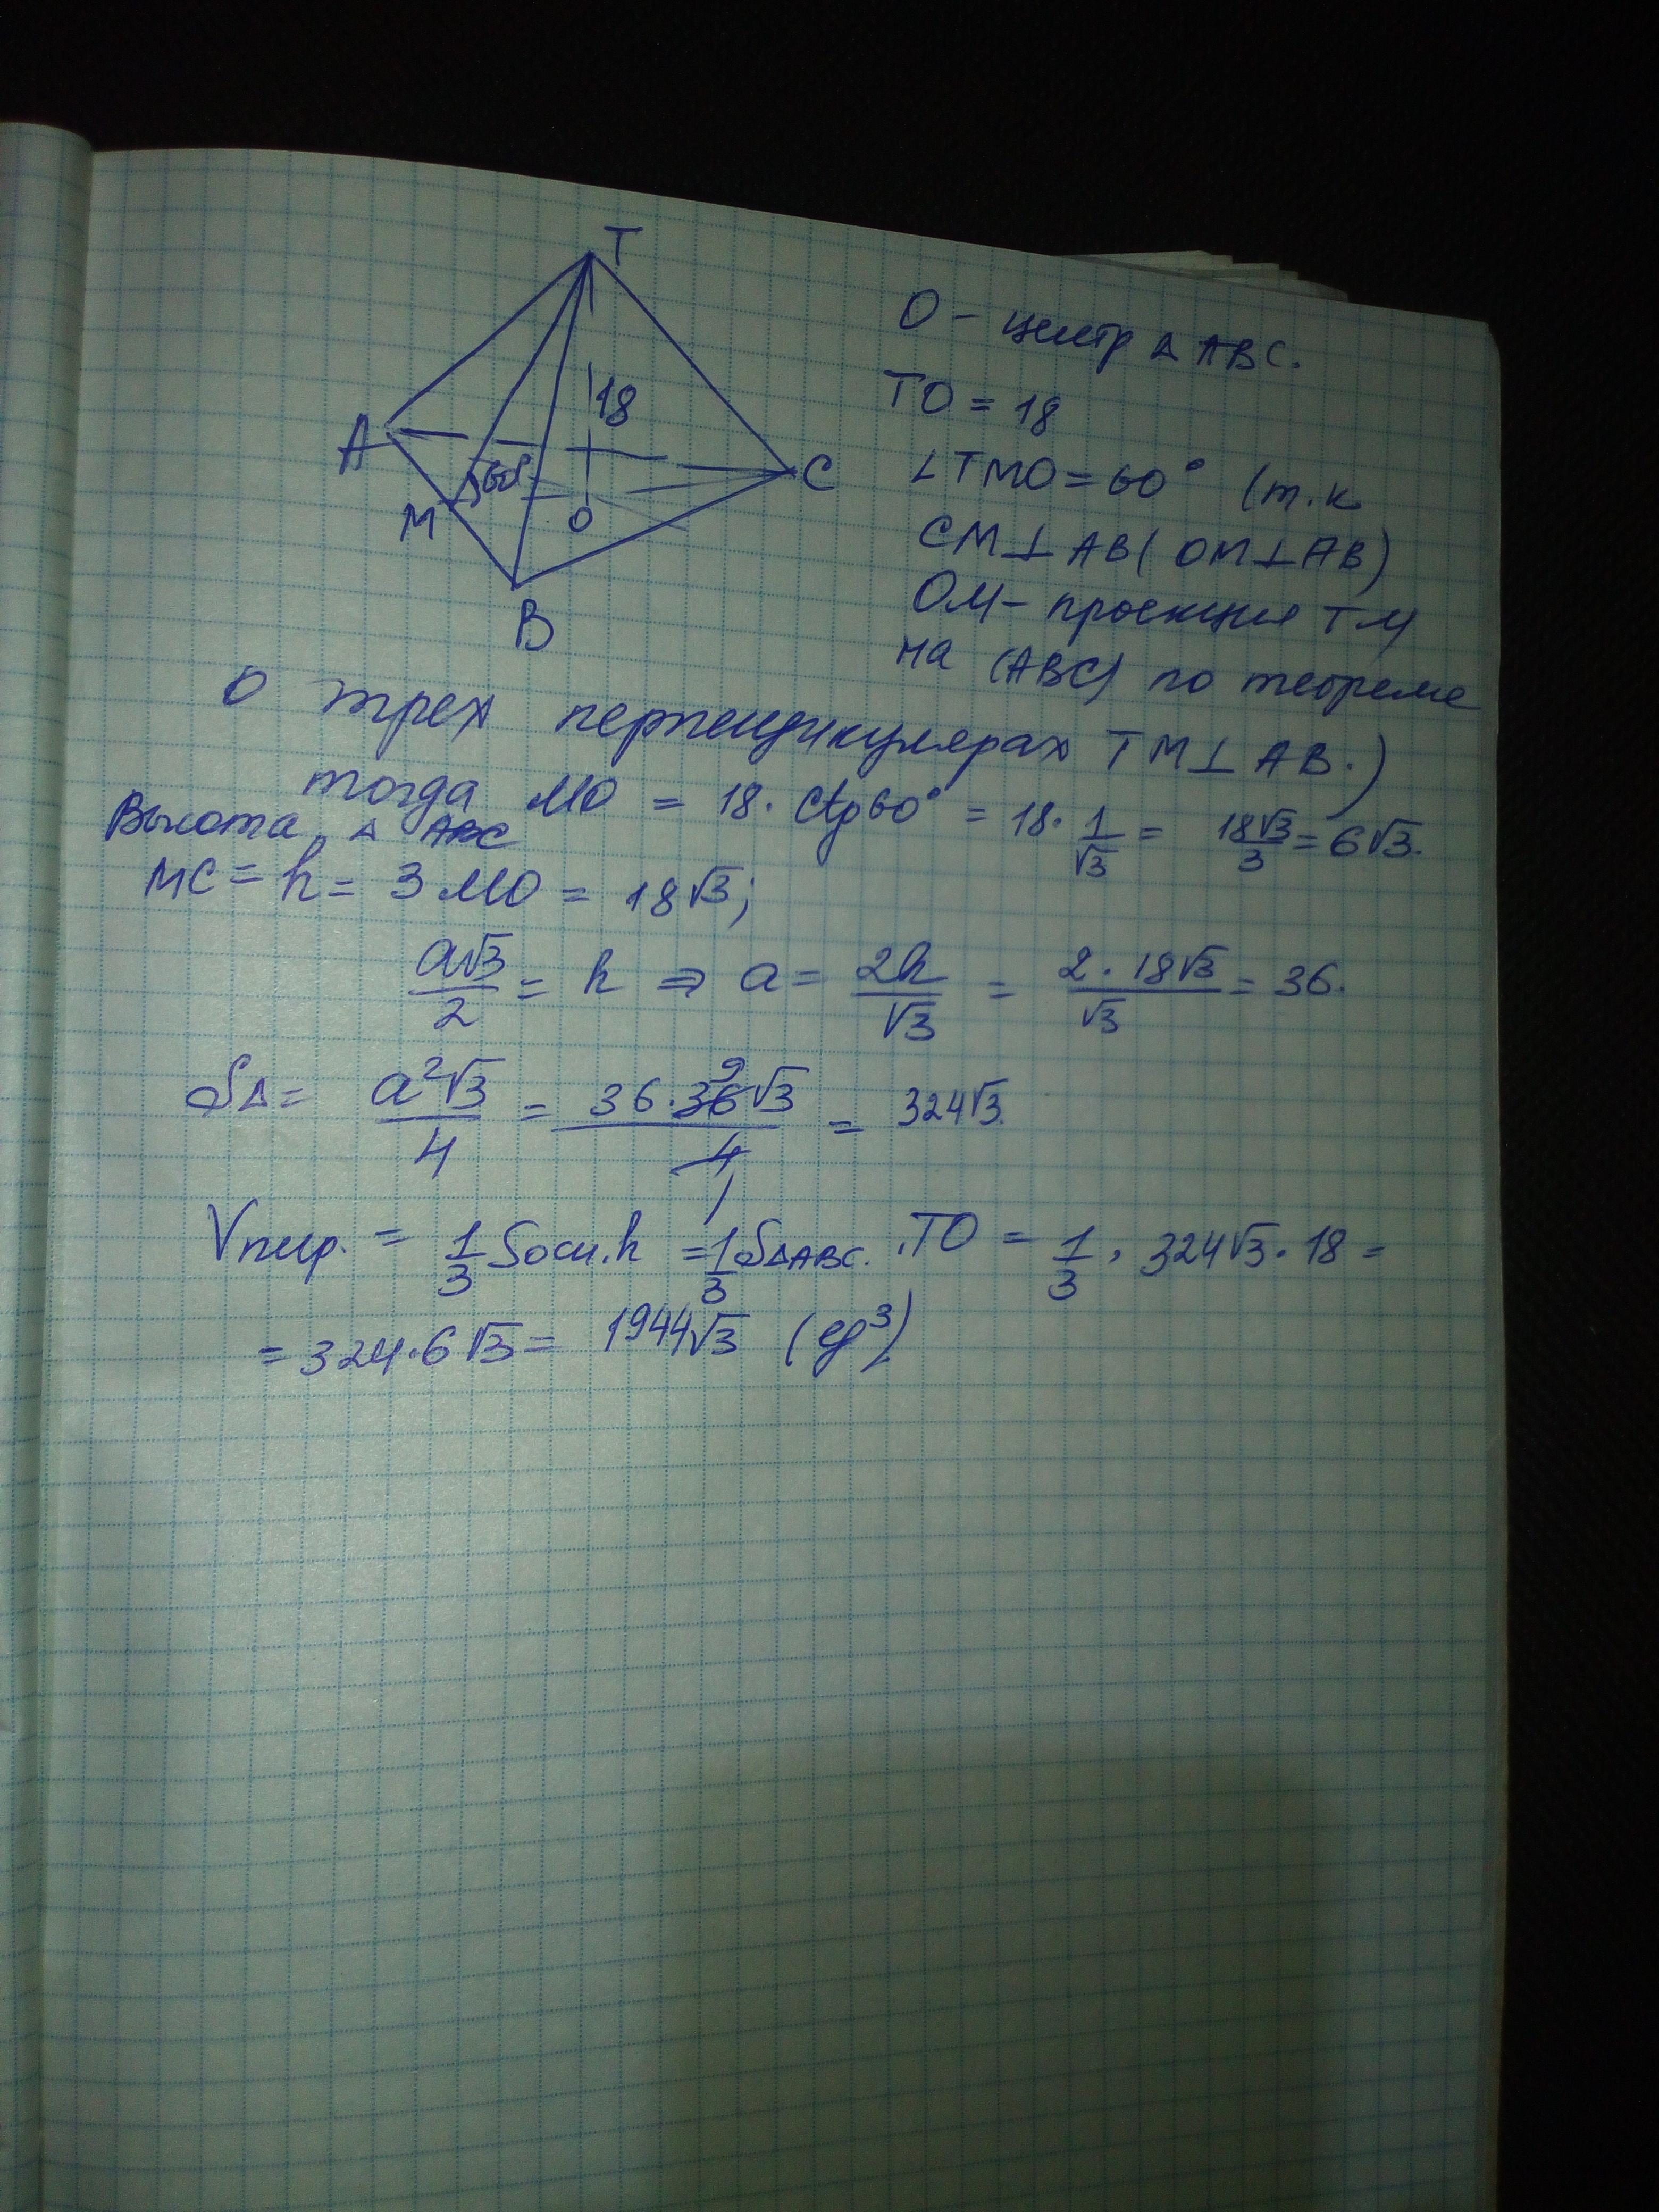 T
18
A
60°
C
M
O
B
O - центр △ ABC.
TO = 18
∠TMO = 60° (т.к
CM⊥AB (OM⊥AB)
OM - проекция TM
на (ABC) по теореме
о трех перпендикулярах TM⊥AB.)
тогда MO = 18. ctg60° = 18. 1/√3 = 18√3/3 = 6√3.
Высота △ ABC
MC = h = 3 MO = 18√3;
a√3/2 = h ⇒ a = 2h/√3 = 2·18√3/√3 = 36.
S△ = a²√3/4 = 36·36√3/4 = 324√3.
9
1
Vпир. = 1/3 Sосн.h = 1/3 S△ABC. .TO = 1/3 · 324√3·18 =
= 324·6√3 = 1944√3 (ед³)